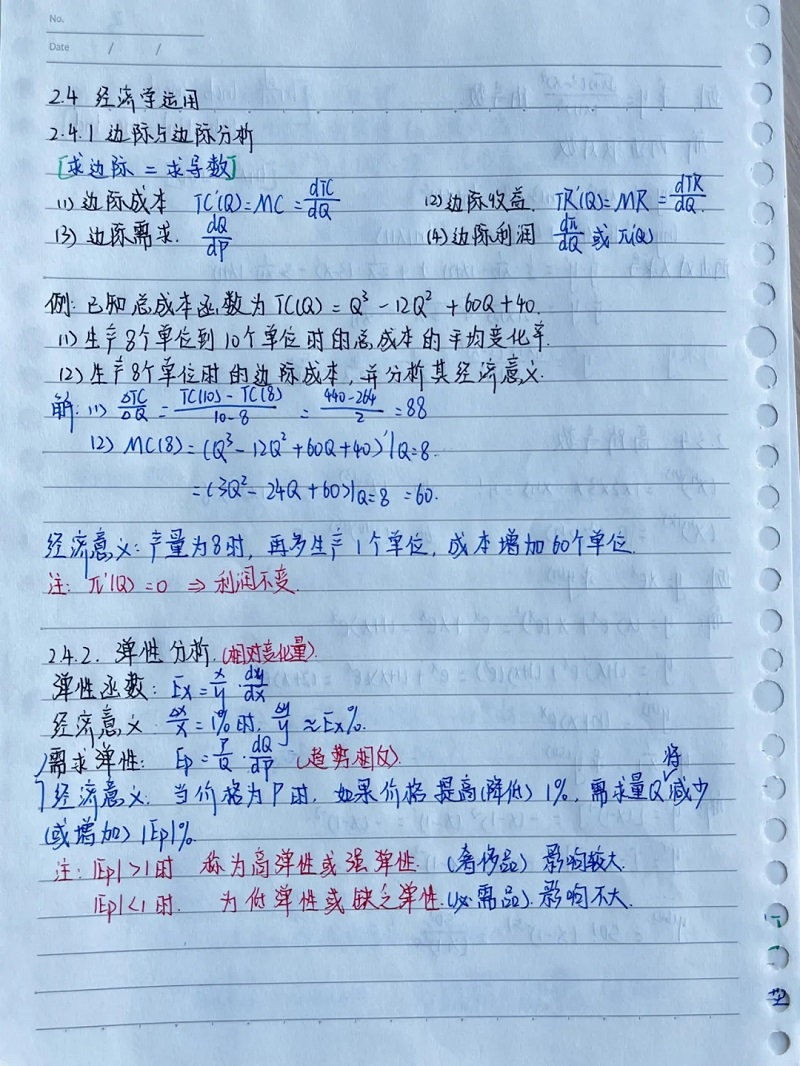 No.
Date / /
2.4 经济学运用
2.4.1 边际与边际分析
[求边际 = 求导数]
(1) 边际成本 TC'(Q)=MC=dTC/dQ (2)边际收益. TR'(Q)=MR=dTR/dQ.
(3) 边际需求. dQ/dP (4)边际利润 dπ/dQ 或 π'(Q)
例: 已知总成本函数为TC(Q)=Q³-12Q²+60Q+40.
(1) 生产8个单位到10个单位时的总成本的平均变化率.
(2) 生产8个单位时的边际成本, 并分析其经济意义.
解: (1) ΔTC/ΔQ = TC(10)-TC(8)/10-8 = 440-264/2 = 88
(2) MC(8)=(Q³-12Q²+60Q+40)'|Q=8.
=(3Q²-24Q+60)|Q=8 =60.
经济意义: 产量为8时, 再多生产1个单位, 成本增加60个单位.
注: π'(Q)=0 ⇒ 利润不变.
2.4.2. 弹性分析.(相对变化量)
弹性函数: Ex = x/y · dy/dx
经济意义: Δx/x = 1%时, Δy/y ≈ Ex%.
需求弹性: Ep = P/Q · dQ/dP (趋势相反)
经济意义: 当价格为P时, 如果价格提高(降低)1%, 需求量Q将减少
(或增加) |Ep|%.
注: |Ep|>1时 称为高弹性或强弹性. (奢侈品) 影响较大.
|Ep|<1时. 为低弹性或缺乏弹性.(必需品). 影响不大.